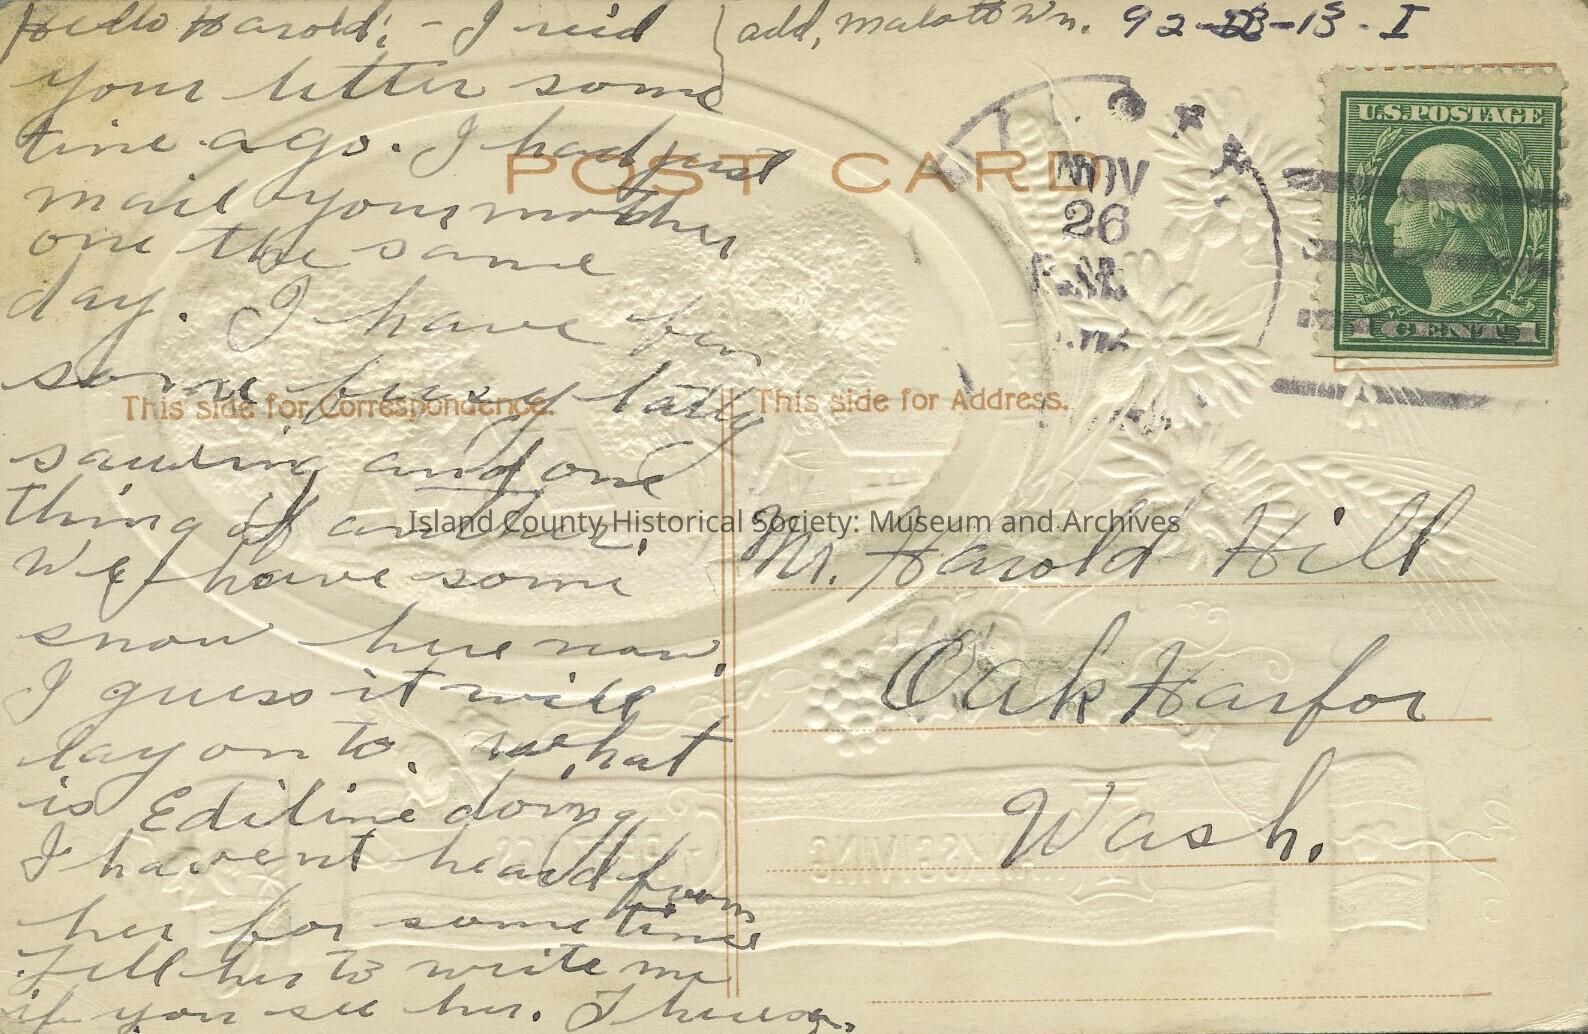 Hello Harold; - I recd
your letter some
time ago. I had just
mail your mother
one the same
day. I have ben
some busy latly
sawing and one
thing of another.
We have some
snow here now.
I guess it will
lay on to. what
is Ediline doing
I havent heard from
her for some time
Tell her to write me
if you see her.
add, Malott Wn. 92-
POST CARD
NOV
26
U.S. POSTAGE
1 CENT 1
This side for Correspondence.
This side for Address.
Island County Historical Society: Museum and Archives
Mr. Harold Hill
Oak Harbor
Wash.
THANKSGIVING
GREETINGS